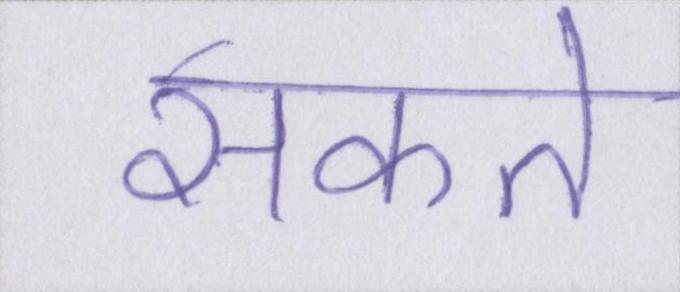 सकते